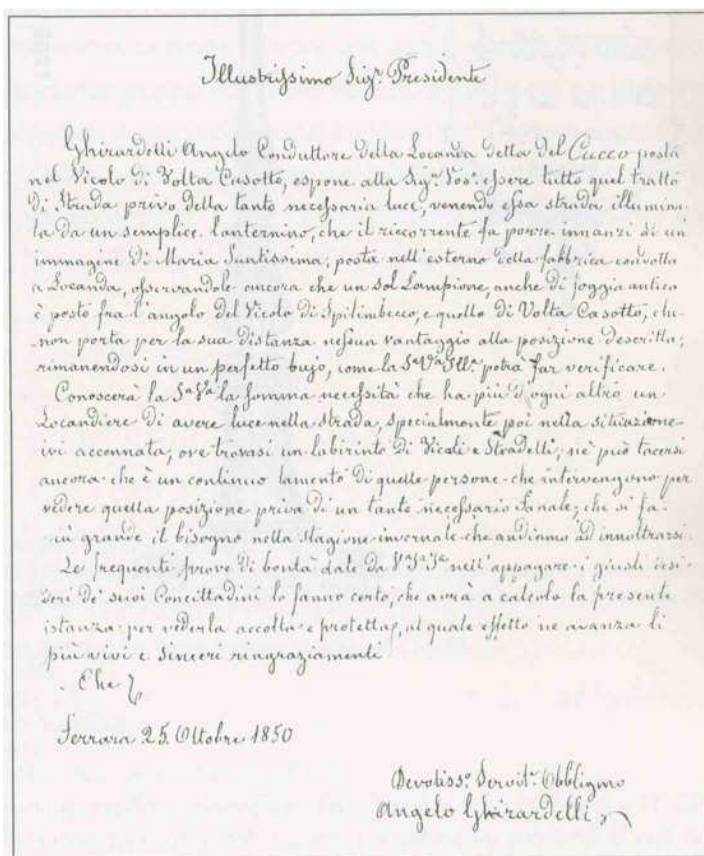 Illustrissimo Sigr. Presidente
Ghirardelli Angelo Conduttore della Locanda detta del Cucco posta
nel Vicolo di Volta Casotto, espone alla Sigr. Vosa. essere tutto quel tratto
di Strada privo della tanto necessaria luce, venendo essa strada illumina-
ta da un semplice lanternino, che il ricorrente fa porre innanzi di un'
immagine di Maria Santissima, posta nell'esterno della fabbrica condotta
a Locanda, osservandole ancora che un sol Lampione, anche di foggia antica
è posto fra l'angolo del Vicolo di Spilimbecco, e quello di Volta Casotto, che
non porta per la sua distanza nessun vantaggio alla posizione descritta;
rimanendosi in un perfetto bujo, come la Sa. Va. Illa. potrà far verificare.
Conoscerà la Sa. Va. la somma necessità che ha più d'ogni altro un
Locandiere di avere luce nella strada, specialmente poi nella situazione
ivi accennata, ove trovasi un labirinto di Vicoli e Stradelli; nè può tacersi
ancora che è un continuo lamento di quelle persone che intervengono per
vedere quella posizione priva di un tanto necessario Fanale, che si fa
più grande il bisogno nella stagione invernale che andiamo ad innoltrarsi.
Le frequenti prove di bontà date da Va. Sa. Ja. nell'appagare i giusti desi-
deri de' suoi Concittadini lo fanno certo, che avrà a calcolo la presente
istanza per vederla accolta e protetta, al quale effetto ne avanza li
più vivi e sinceri ringraziamenti
Che
Ferrara 25. Ottobre 1850
Devotisso. Servite. Obbligmo
Angelo Ghirardelli